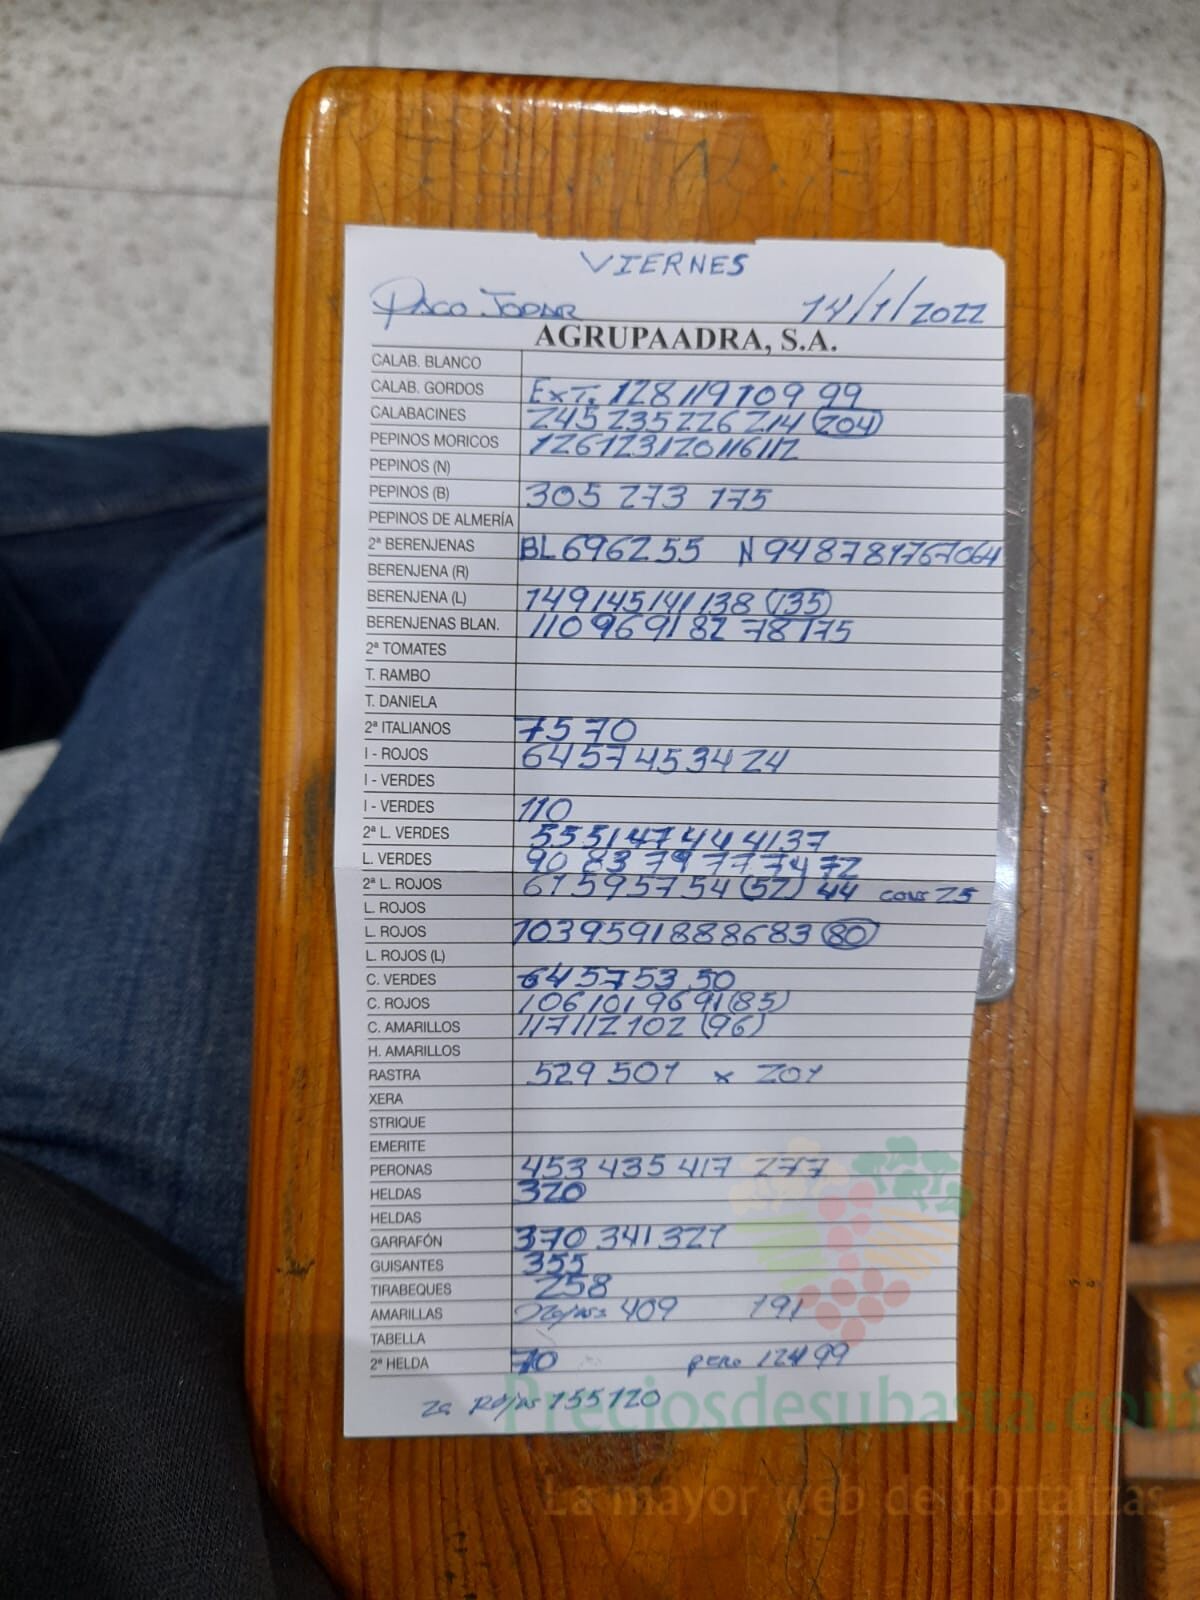 VIERNES
PACO JODAR 14/1/2022
AGRUPAADRA, S.A.
CALAB. BLANCO
CALAB. GORDOS EXT. 128 119 109 99
CALABACINES 245 235 226 214 (204)
PEPINOS MORICOS 126 123 120 116 112
PEPINOS (N)
PEPINOS (B) 305 273 175
PEPINOS DE ALMERÍA
2ª BERENJENAS BL 69 62 55 N 94 87 81 76 70 64
BERENJENA (R)
BERENJENA (L) 149 145 141 138 (135)
BERENJENAS BLAN. 110 96 91 82 78 175
2ª TOMATES
T. RAMBO
T. DANIELA
2ª ITALIANOS 75 70
I - ROJOS 64 57 45 34 24
I - VERDES
I - VERDES 110
2ª L. VERDES 55 51 47 44 41 37
L. VERDES 90 83 79 77 74 72
2ª L. ROJOS 61 59 57 54 (52) 44 CONS 25
L. ROJOS
L. ROJOS 103 95 91 88 86 83 (80)
L. ROJOS (L)
C. VERDES 64 57 53 50
C. ROJOS 106 101 96 91 (85)
C. AMARILLOS 117 112 102 (96)
H. AMARILLOS
RASTRA 529 501 x 201
XERA
STRIQUE
EMERITE
PERONAS 453 435 417 277
HELDAS 320
HELDAS
GARRAFÓN 370 341 321
GUISANTES 355
TIRABEQUES 258
AMARILLAS 409 191
TABELLA
2ª HELDA 70 PERO 124 99
2ª Rojas 155 120
Preciosdesubasta.com
La mayor web de hortalizas